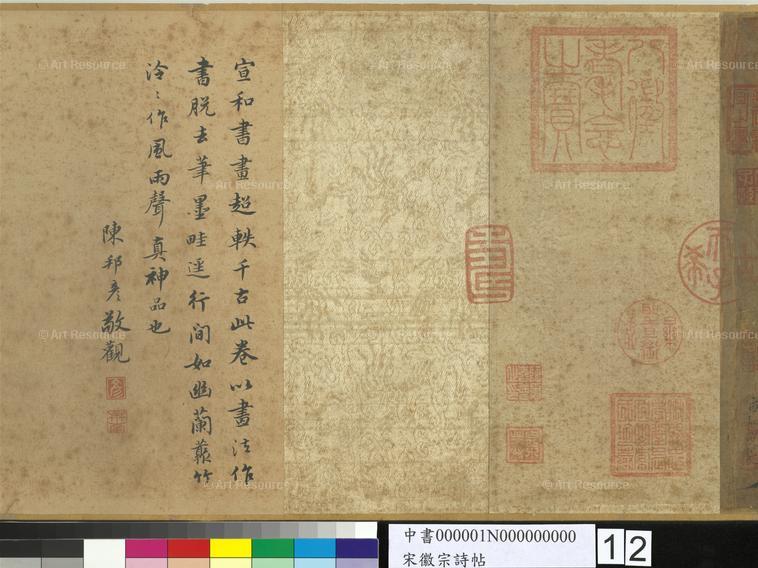 宣和書畫超軼千古此卷以畫法作
書脱去筆墨畦逕行間如幽蘭叢竹
泠泠作風雨聲真神品也
陳邦彥敬觀
八徵耄念
之寶
天子
古希
© Art Resource
中書000001N000000000
宋徽宗詩帖
12